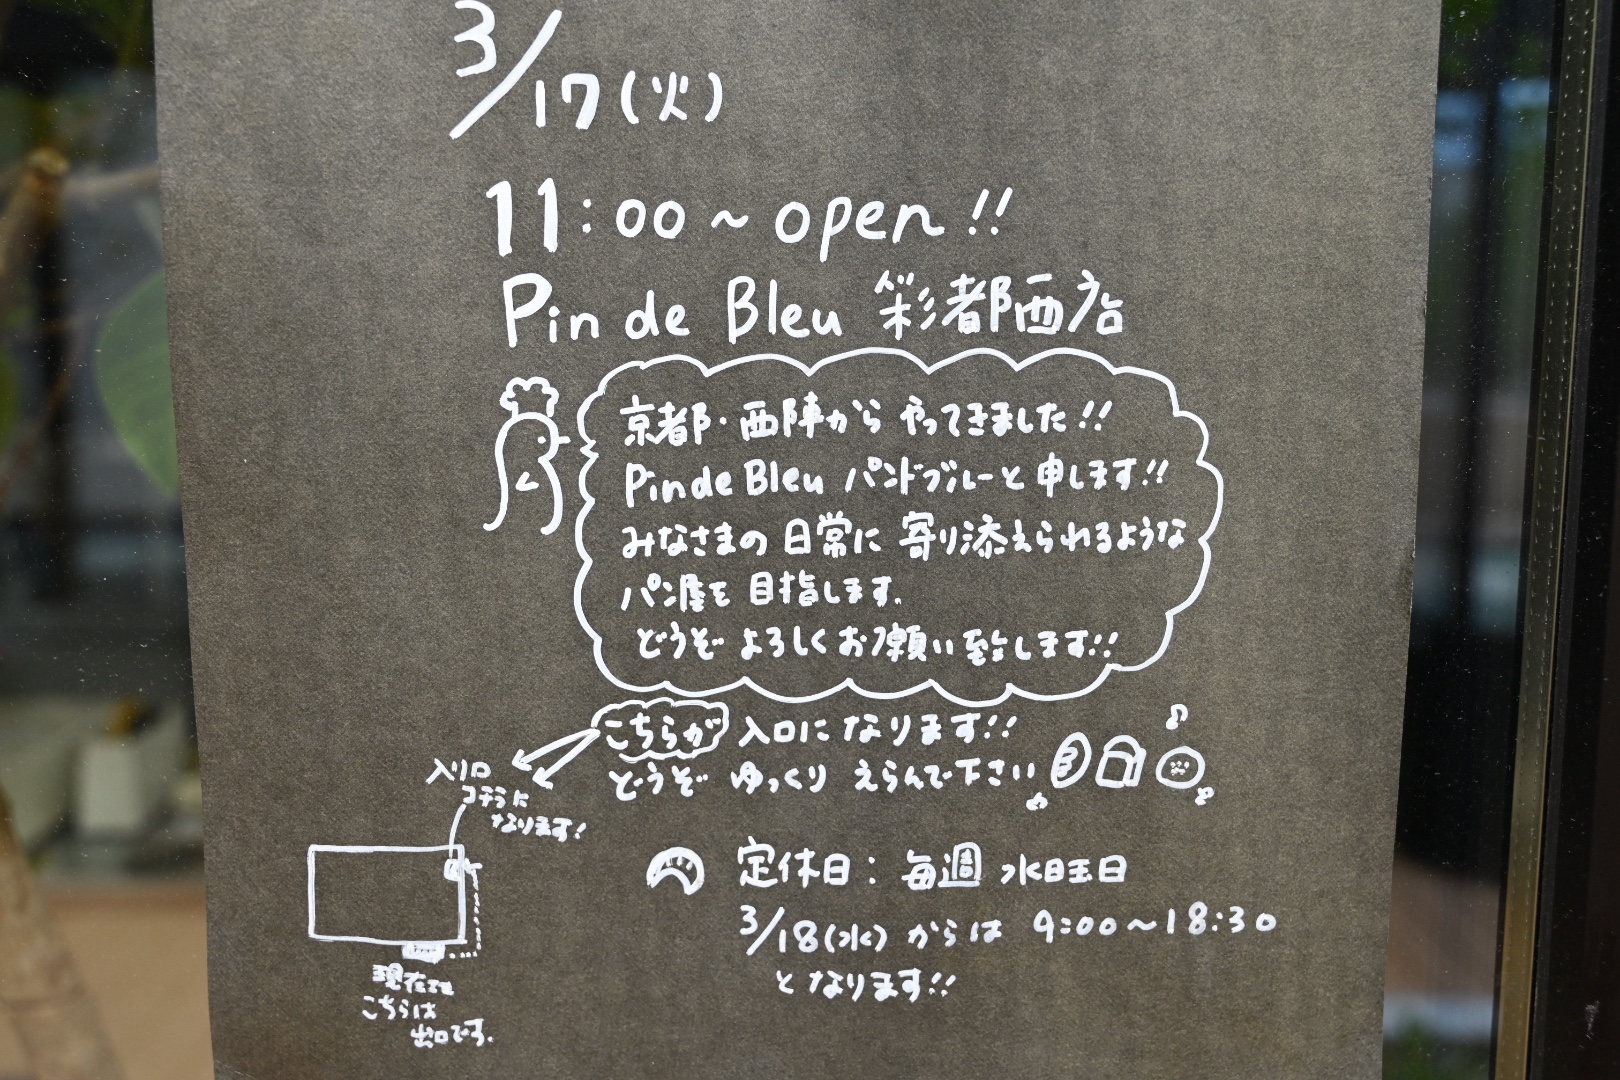 3/17(火)
11:00~open!!
Pin de Bleu 彩都西店
京都・西陣から やってきました!!
Pin de Bleu パンドブルーと申します!!
みなさまの 日常に 寄り添えられるような
パン屋を 目指します。
どうぞ よろしくお願い致します!!
こちらが 入口に なります!!
どうぞ ゆっくり えらんで下さい
入り口
コチラに
なります!
定休日: 毎週 水曜日
3/18(水) からは 9:00~18:30
と なります!!
現在地
こちらは
出口です。